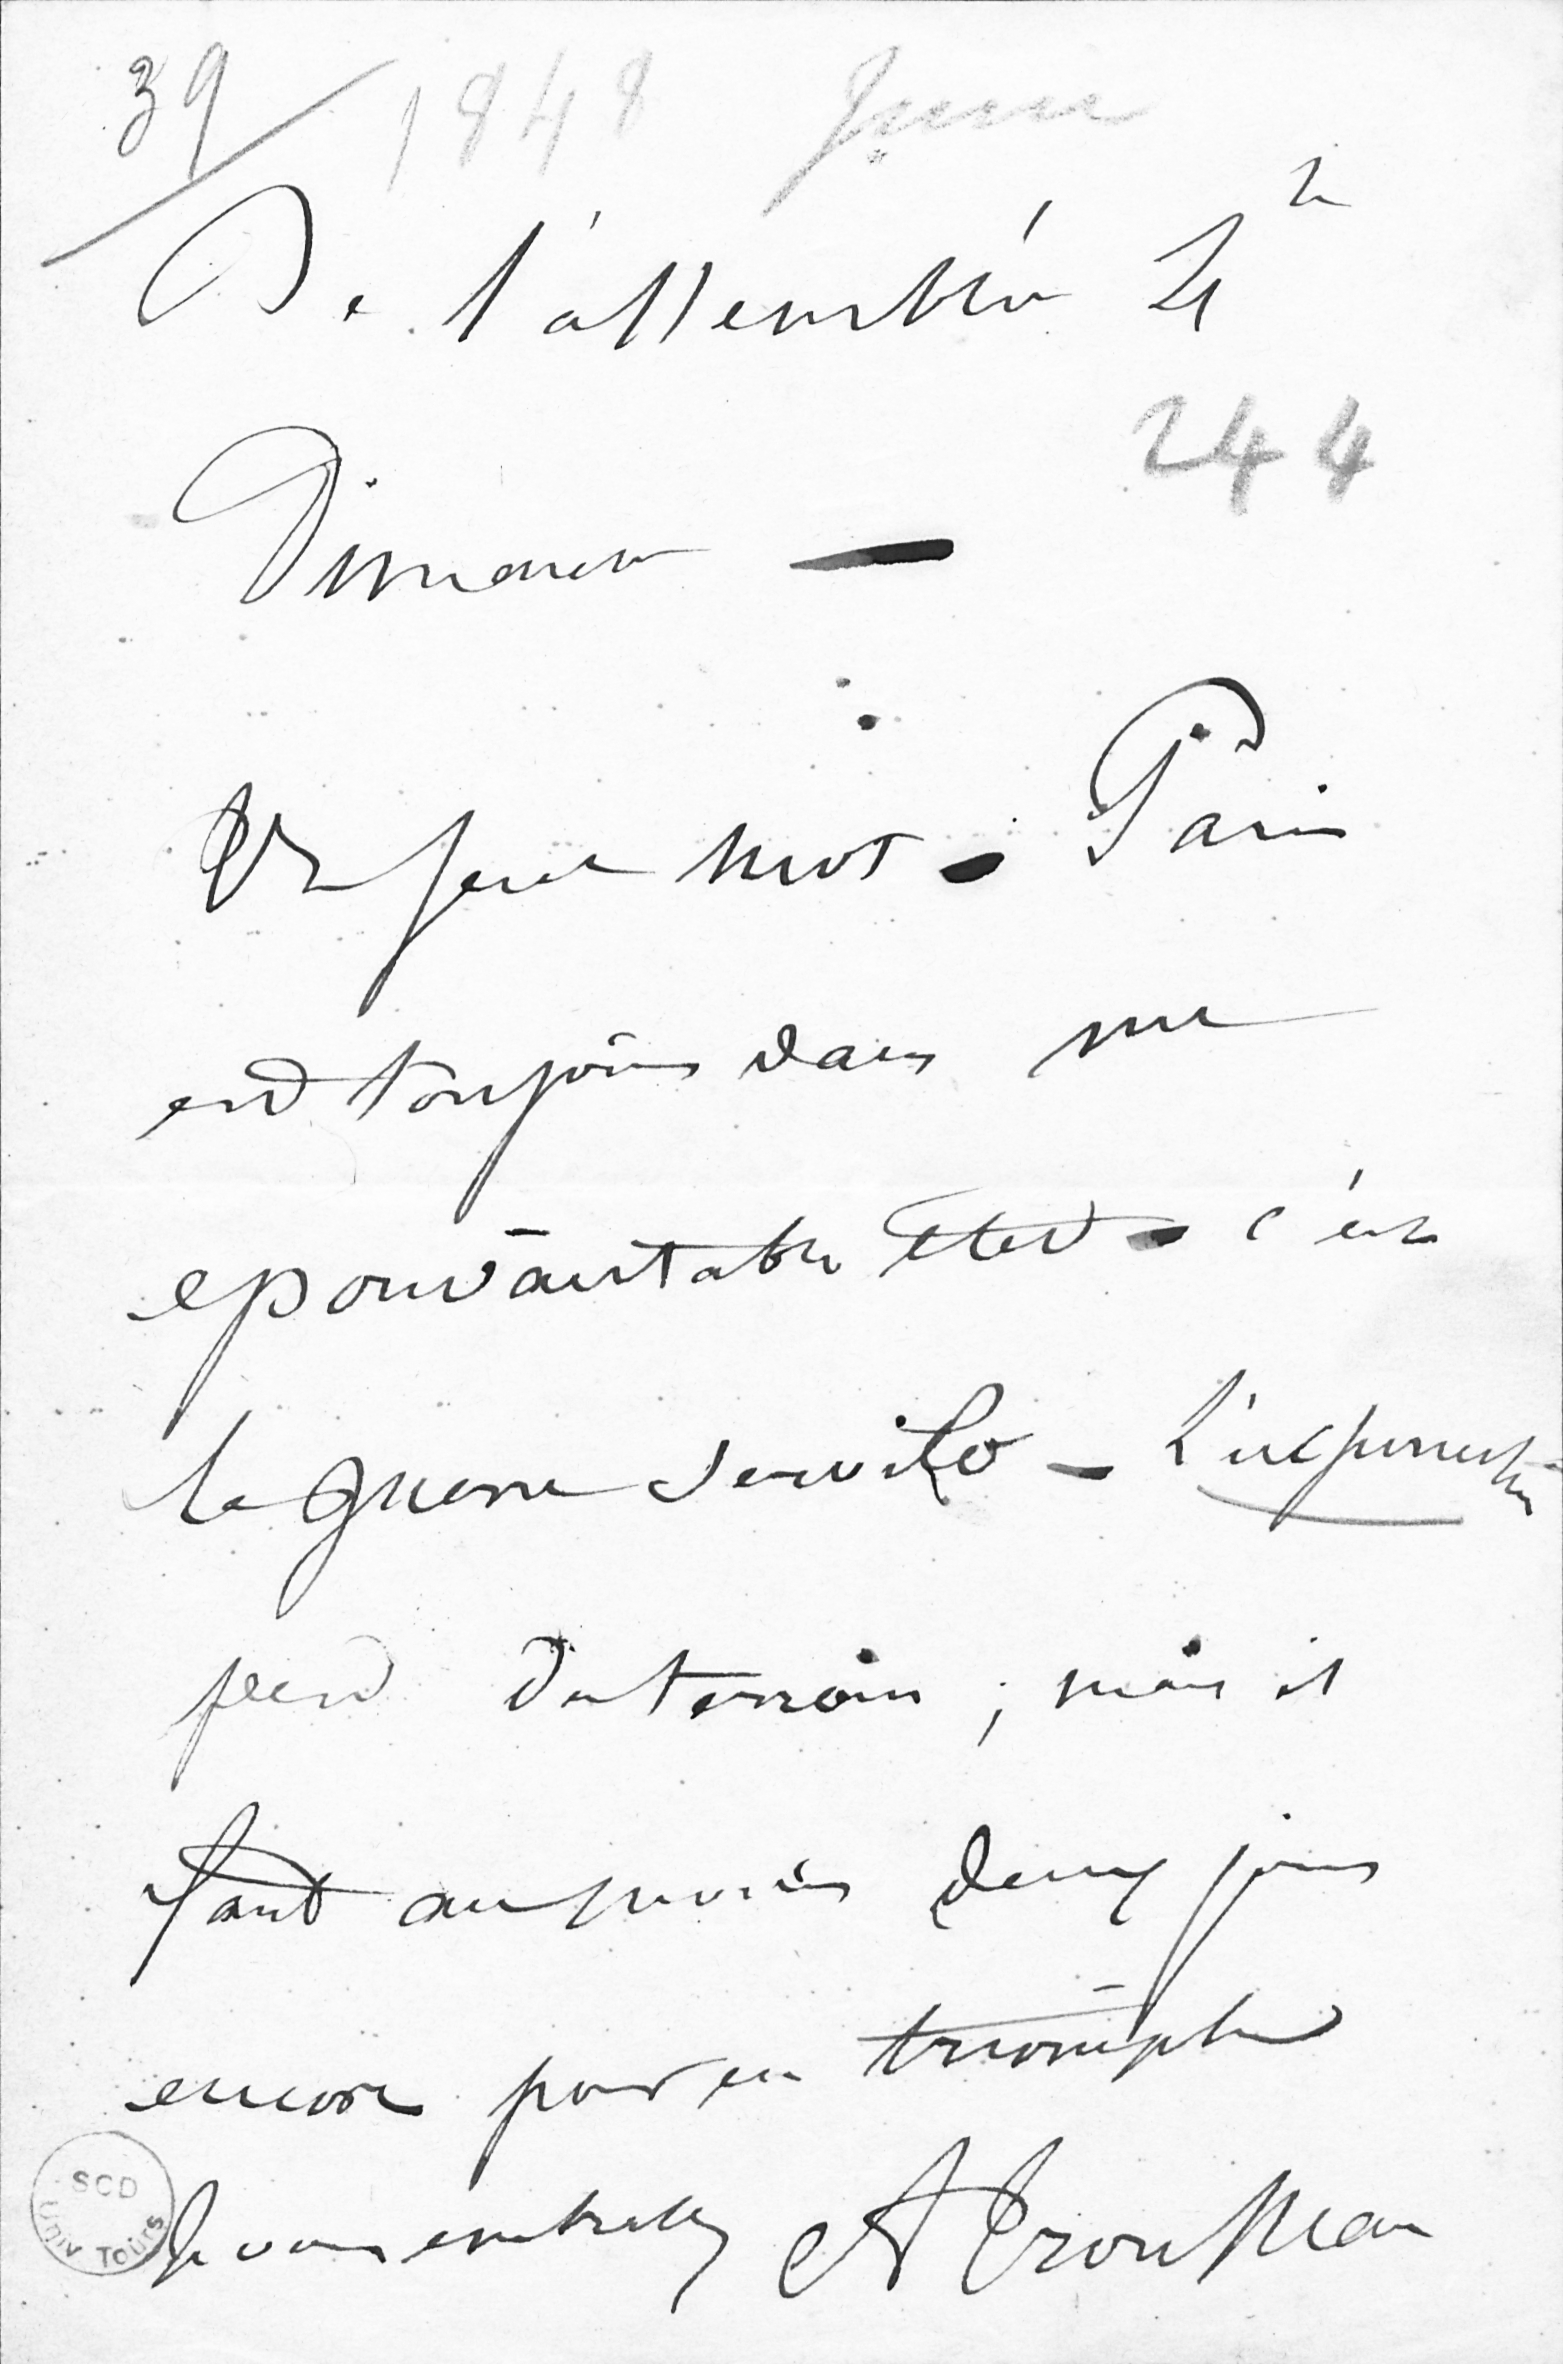 39 1848 Juin
De l'assemblée 2h
244
Dimanche —
Un seul mot - Paris
est toujours dans un
epouvantable état - c'est
la guerre servile - L'insurrection
perd du terrain ; mais il
faut au moins deux jours
encore pour en triompher
Je vous embrasse A Trousseau
SCD
Univ Tours